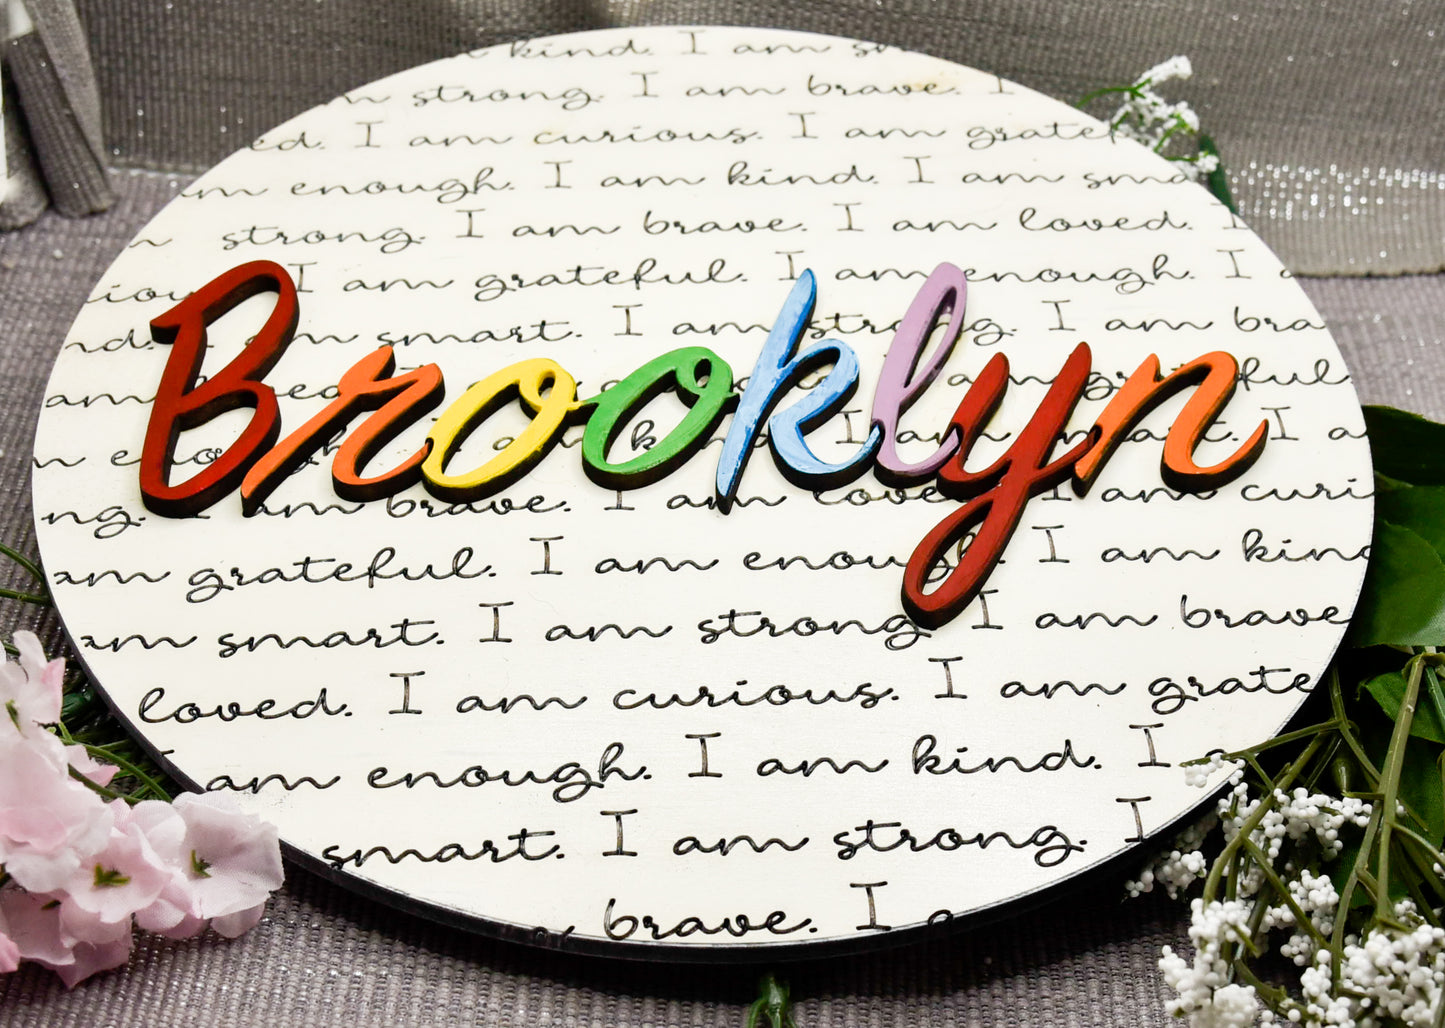 kind. I am sm
m strong. I am brave. I
ed. I am curious. I am gratef
am enough. I am kind. I am sma
m strong. I am brave. I am loved. I
iou I am grateful. I am enough. I a
nd. I m smart. I am strong. I am bra
am
Brooklyn
ng. I am brave. I am loved I am curi
am grateful. I am enough. I am kind
am smart. I am strong I am brave
loved. I am curious. I am grate
I am enough. I am kind. I a
smart. I am strong. I
brave. I a